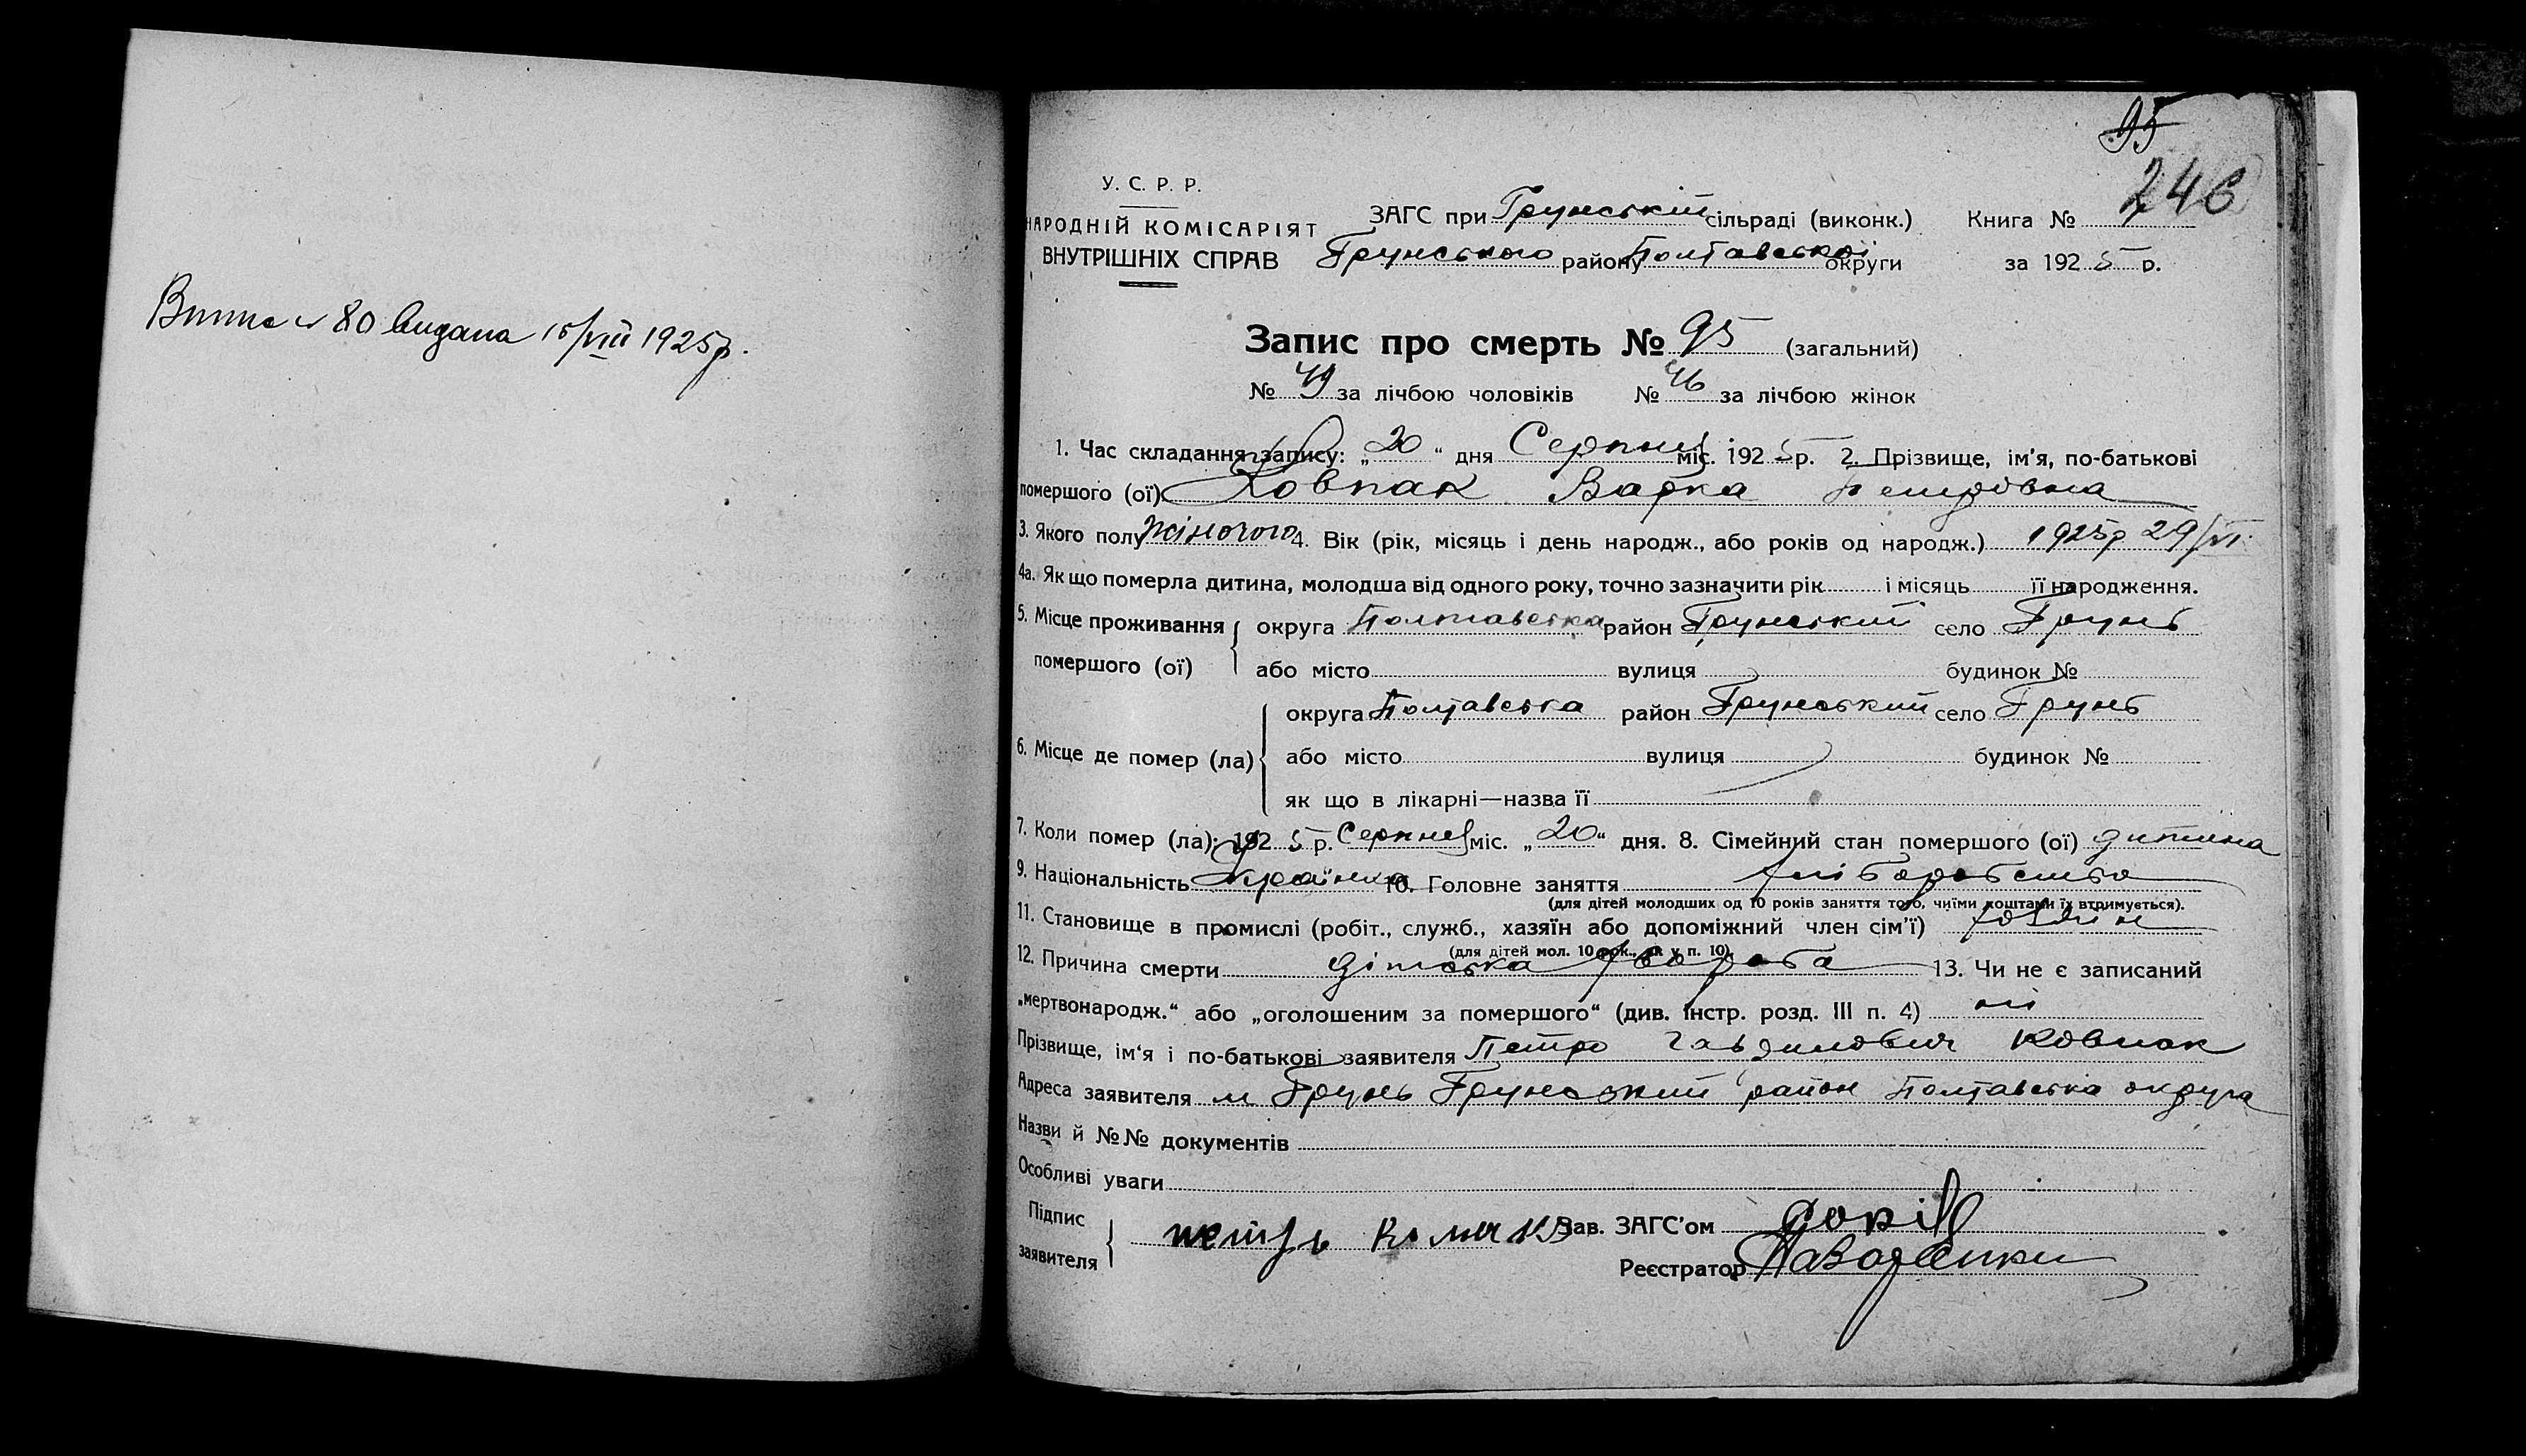 видана 15/VIII 1925р.
95
246
У. С. Р. Р.
НАРОДНІЙ КОМІСАРІЯТ
ВНУТРІШНІХ СПРАВ
ЗАГС при Грунській сільраді (виконк.) Книга №
Грунського району Полтавської округи за 1925 р.
Запис про смерть № 95 (загальний)
№ 49 за лічбою чоловіків № 46 за лічбою жінок
1. Час складання запису: „20“ дня Серпня міс. 1925 р. 2. Прізвище, ім'я, по-батькові
помершого (ої) Ковпак Варка Петровна
3. Якого полу жіночого 4. Вік (рік, місяць і день народж., або років од народж.) 1925р 29/VI
4а. Як що померла дитина, молодша від одного року, точно зазначити рік і місяць її народження.
5. Місце проживання помершого (ої) округа Полтавська район Грунський село Грунь
або місто вулиця будинок №
6. Місце де помер (ла) округа Полтавська район Грунський село Грунь
або місто вулиця будинок №
як що в лікарні—назва її
7. Коли помер (ла): 1925 р. Серпня міс. „20“ дня. 8. Сімейний стан помершого (ої) дитина
9. Національність Українка 10. Головне заняття хліборобство
(для дітей молодших од 10 років заняття того, чиїми коштами їх втримується).
11. Становище в промислі (робіт., служб., хазяїн або допоміжний член сім'ї) хозяїн
(для дітей мол. 10 рок., як у п. 10).
12. Причина смерти дітська хвороба 13. Чи не є записаний
„мертвонародж.“ або „оголошеним за помершого“ (див. інстр. розд. III п. 4) ні
Прізвище, ім'я і по-батькові заявителя Петро Гаврилович Ковпак
Адреса заявителя м Грунь Грунський район Полтавська округа
Назви й №№ документів
Особливі уваги
Підпис заявителя Зав. ЗАГС'ом
Реєстратор